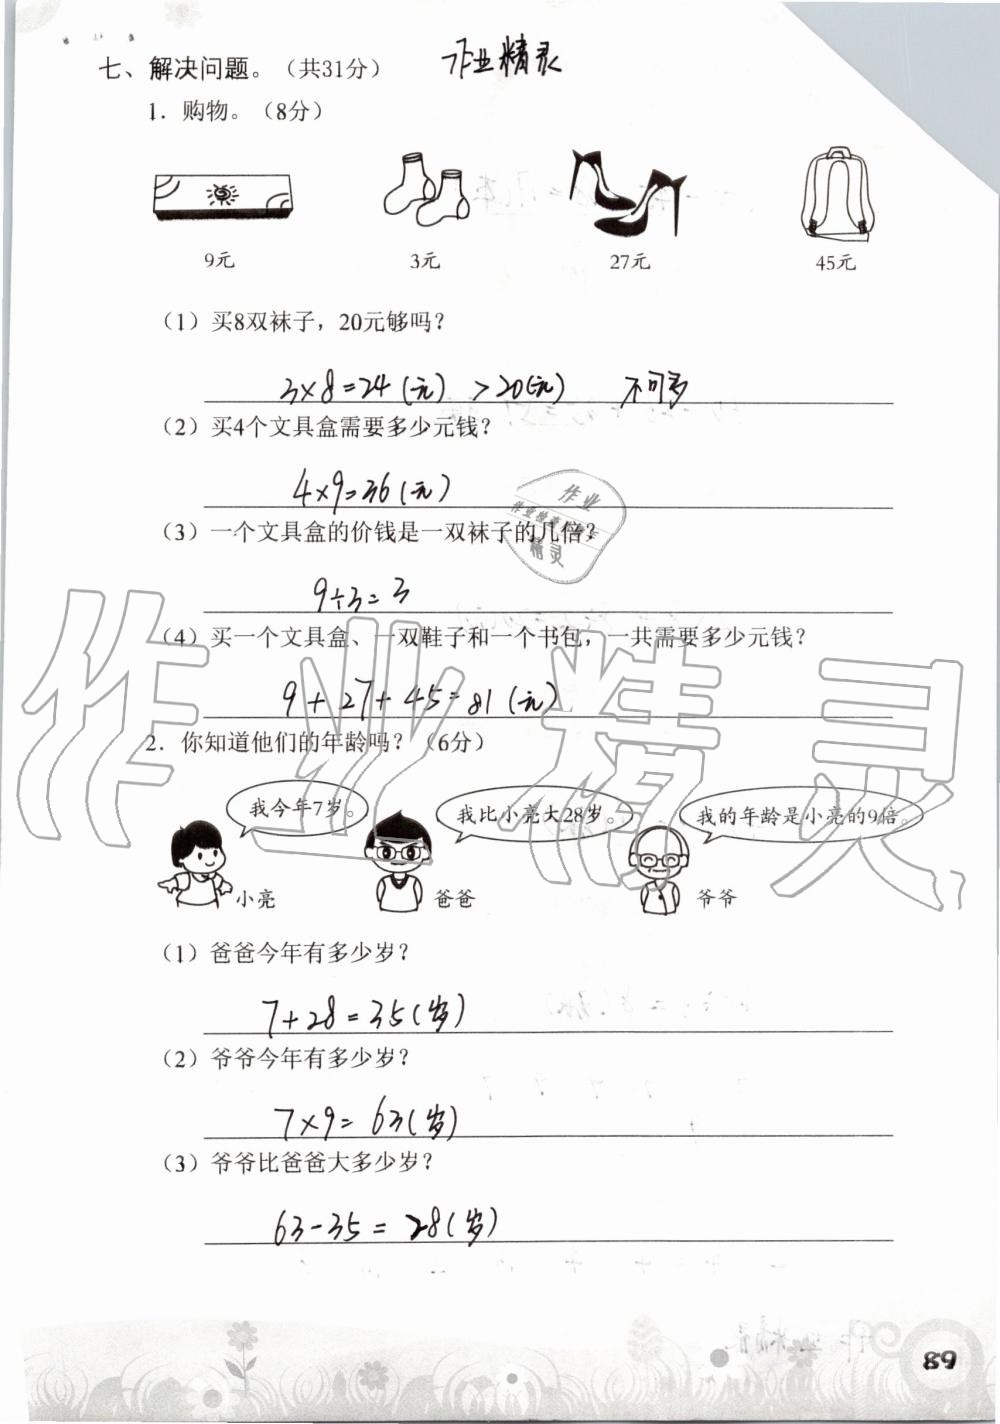 作业精灵
七、解决问题。（共31分）
1. 购物。（8分）
9元 3元 27元 45元
（1）买8双袜子，20元够吗？
3×8=24（元） >20(元) 不可多
（2）买4个文具盒需要多少元钱？
4×9=36（元）
作业
精灵
（3）一个文具盒的价钱是一双袜子的几倍？
9÷3=3
（4）买一个文具盒、一双鞋子和一个书包，一共需要多少元钱？
9+27+45=81（元）
作业精灵
2. 你知道他们的年龄吗？（6分）
我今年7岁。 我比小亮大28岁。 我的年龄是小亮的9倍。
小亮 爸爸 爷爷
（1）爸爸今年有多少岁？
7+28=35(岁)
（2）爷爷今年有多少岁？
7×9=63(岁)
（3）爷爷比爸爸大多少岁？
63-35=28(岁)
89